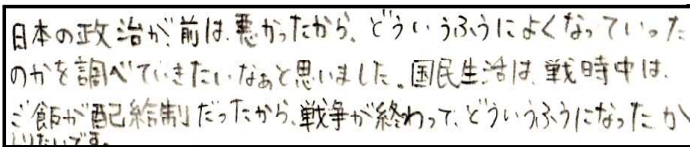 日本の政治が、前は、悪かったから、どういうふうによくなっていった
のかを調べていきたいなぁと思いました。国民生活は、戦時中は、
ご飯が配給制だったから、戦争が終わって、どういうふうになったか
りたいです。